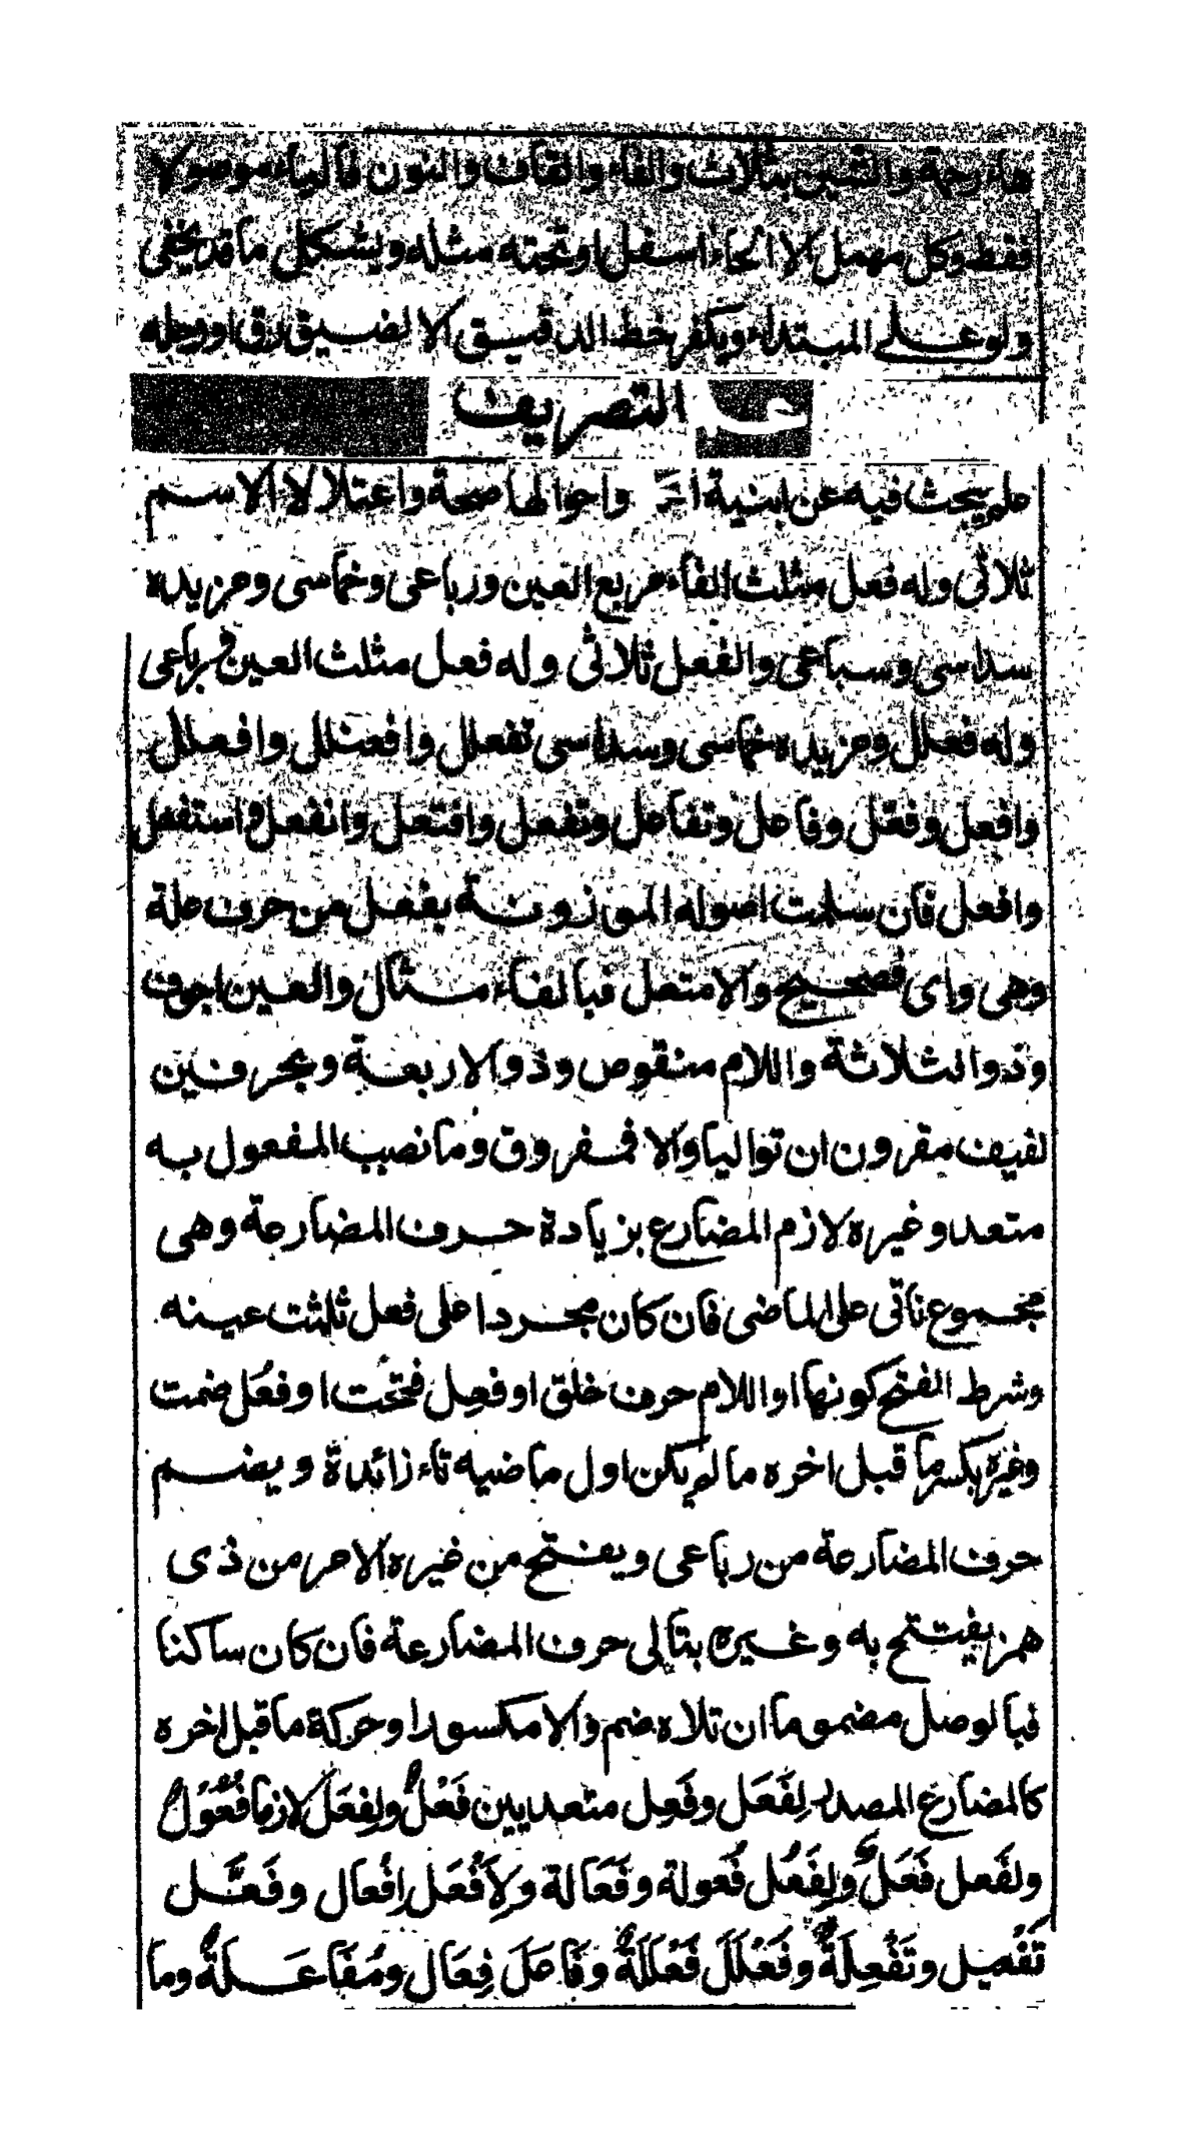 هاء رحمة والشين بثلاث والفاء والقاف والنون فالياء موصولا
فقط وكل مهمل الا الحاء اسفل او تحته مثله ويشكل ما قد يخفى
ولو على المبتداء ويكفر خط الدقيق الا لضيق رق او رحله
علم التصريف
علم يبحث فيه عن ابنية واحوالها صحة واعتلالا الاسم
ثلاثي وله فعل مثلث الفاء مربع العين ورباعى وخماسى ومزيده
سداسى وسباعى والفعل ثلاثى وله فعل مثلث العين ورباعى
وله فعلل ومزيده خماسى وسداسى تفعلل وافعنلل وافعلل
وافعل وفعّل وفاعل وتفاعل وتفعل وافتعل وانفعل واستفعل
وافعل فان سلمت اصوله الموزونة بفعل من حرف علة
وهى واى فصحيح والا معتل فبالفاء مثال والعين اجوف
وذو الثلاثة واللام منقوص وذو الاربعة وبحرفين
لفيف مقرون ان تواليا والا فمفروق وما نصب المفعول به
متعد وغيره لازم المضارع بزيادة حرف المضارعة وهى
مجموع ناتى على الماضى فان كان مجردا على فعل ثلثت عينه
وشرط الفتح كونها او اللام حرف خلق او فعِل فتحت او فعُل ضمت
وغيره بكسر ما قبل اخره ما لم يكن اول ماضيه تاء زائدة ويضم
حرف المضارعة من رباعى ويفتح من غيره الامر من ذى
همز يفتتح به وغيره بتالى حرف المضارعة فان كان ساكنا
فبالوصل مضموما ان تلاه ضم والا مكسورا وحركة ما قبل اخره
كالمضارع المصدر لِفَعَل وفَعِل متعديين فَعْلٌ ولِفعَل لازما فُعُوْلٌ
ولفَعِل فَعَلٌ ولِفَعُل فُعولة وفَعَالة ولِاَفْعَل اِفْعال وفَعَّل
تَفْعِيل وتَفْعِلَةٌ وفَعْلَلَ فَعْلَلَةٌ وفَاعَلَ فِعَال ومُفَاعَلَةٌ وما